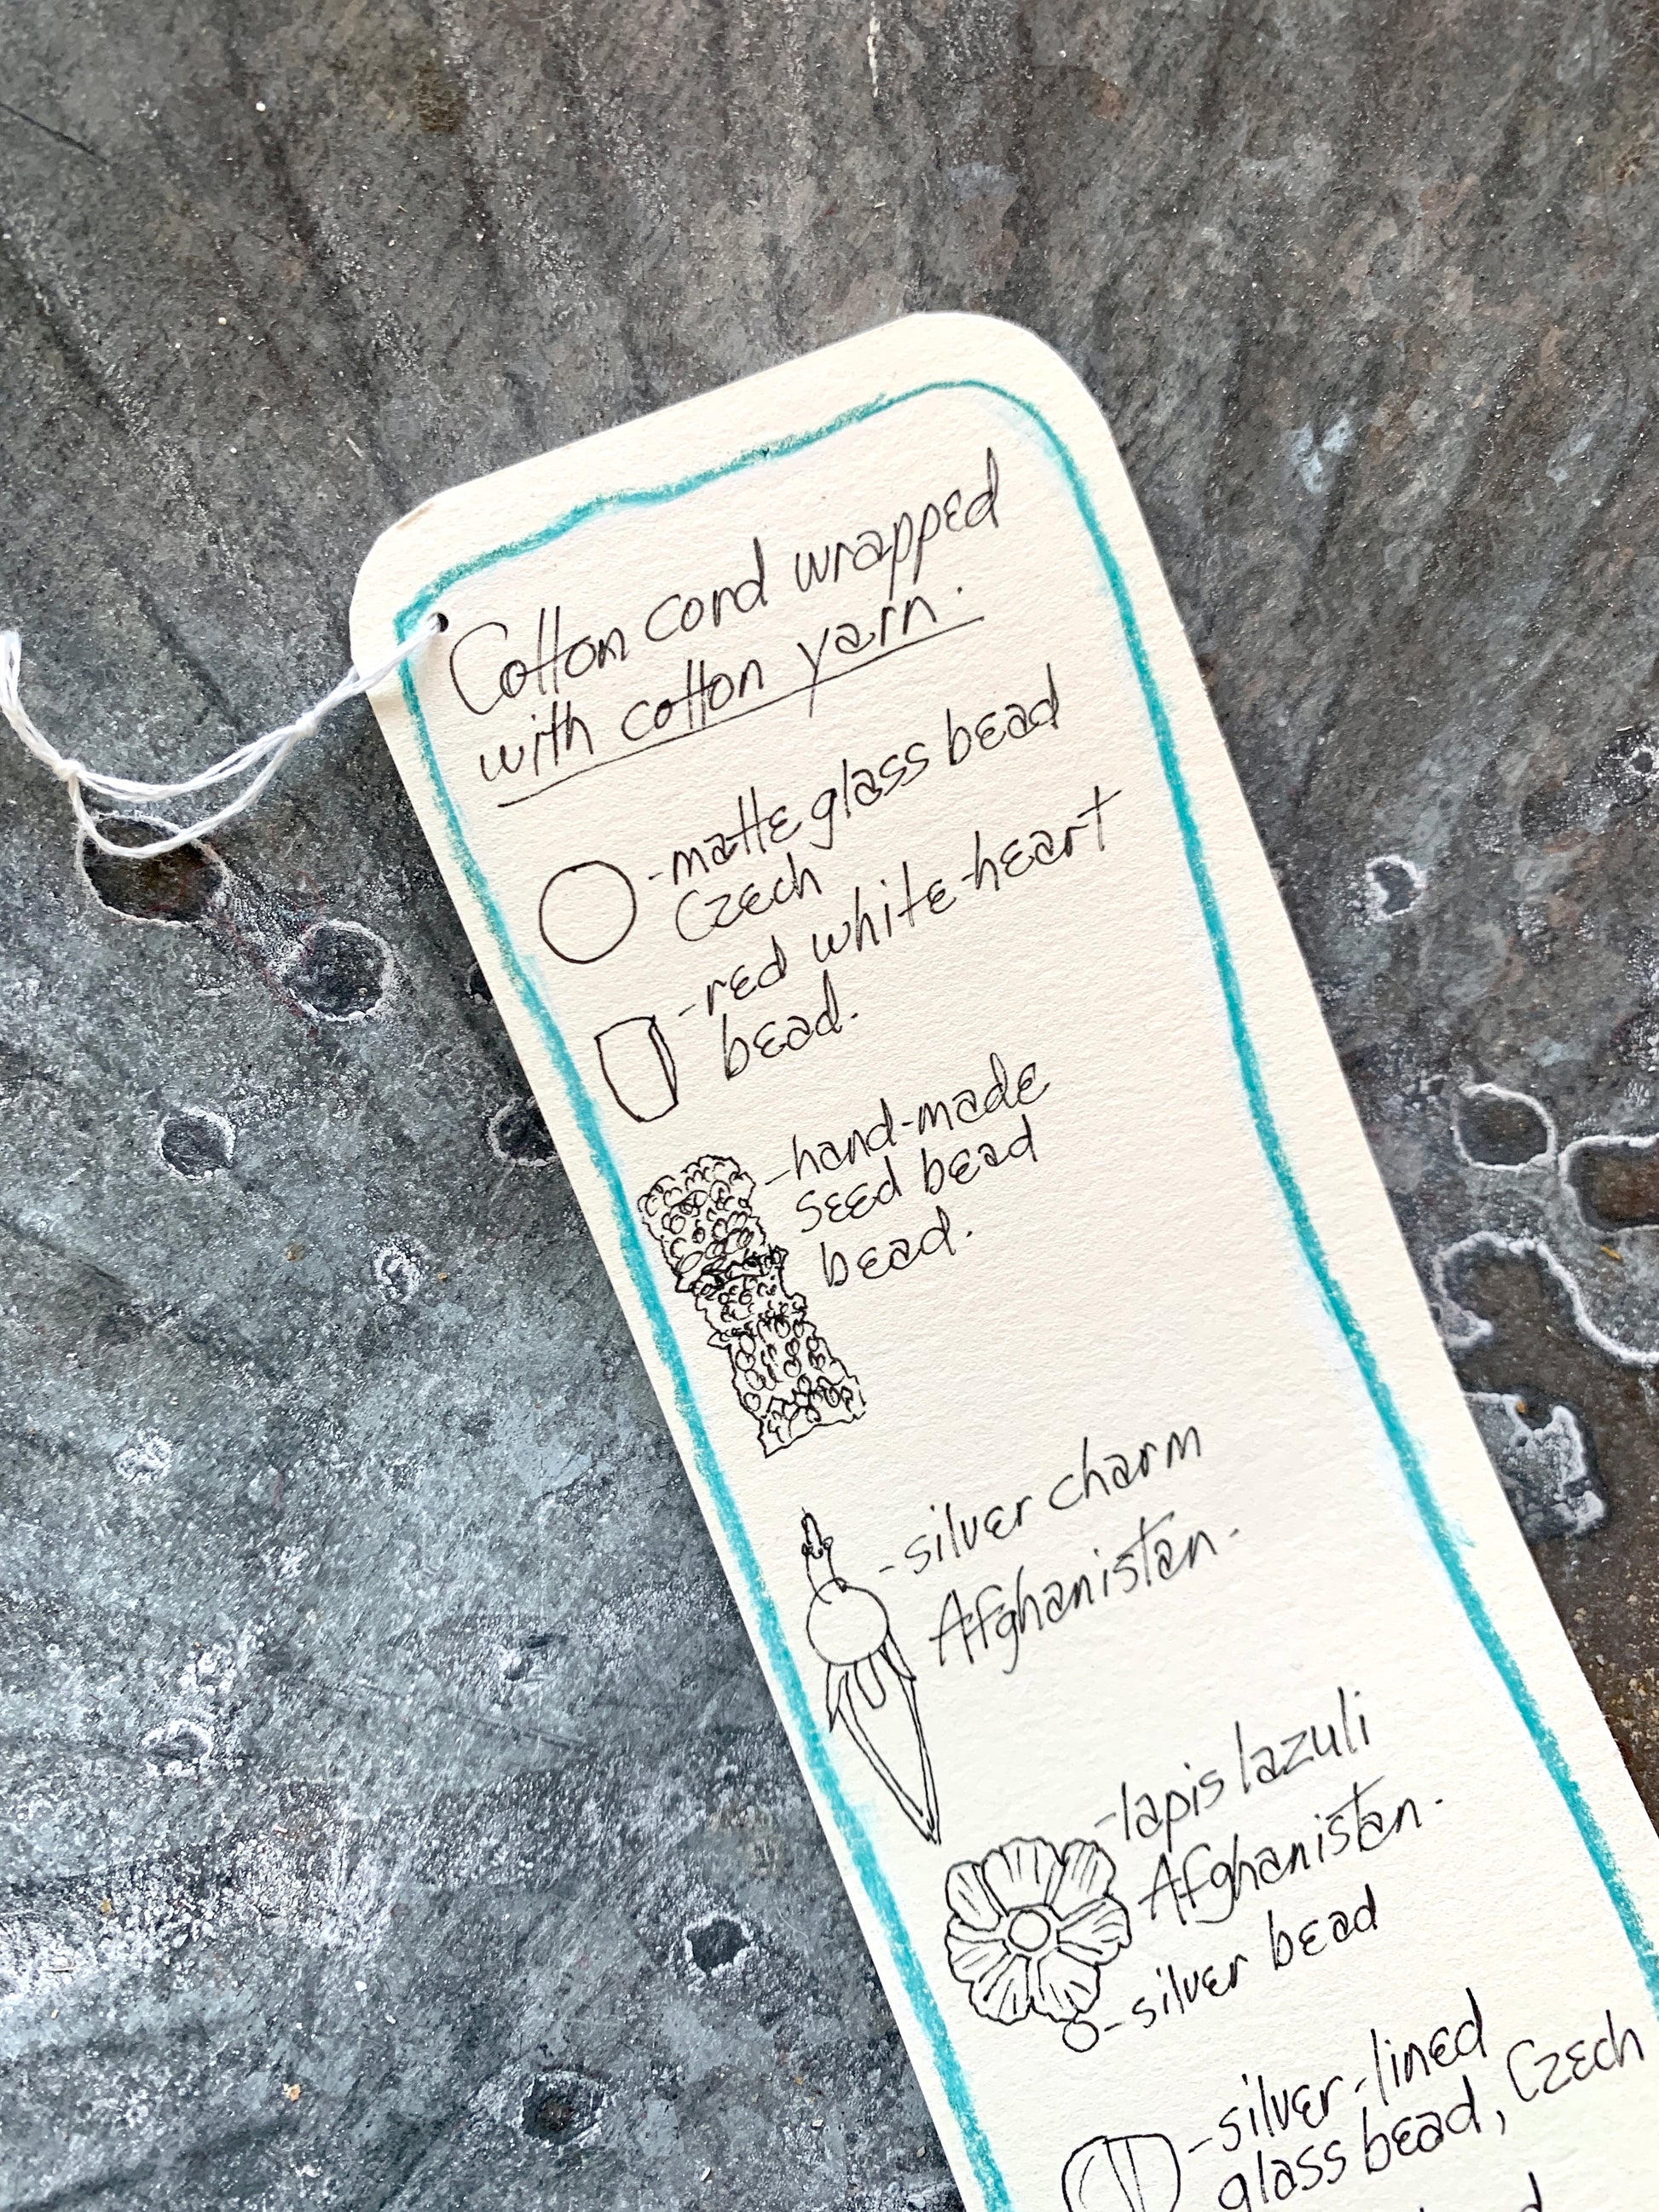 Cotton cord wrapped
with cotton yarn.
-matte glass bead
Czech
-red white-heart
bead.
-hand-made
seed bead
bead.
-silver charm
Afghanistan.
-lapis lazuli
Afghanistan.
-silver bead
-silver-lined
glass bead, Czech